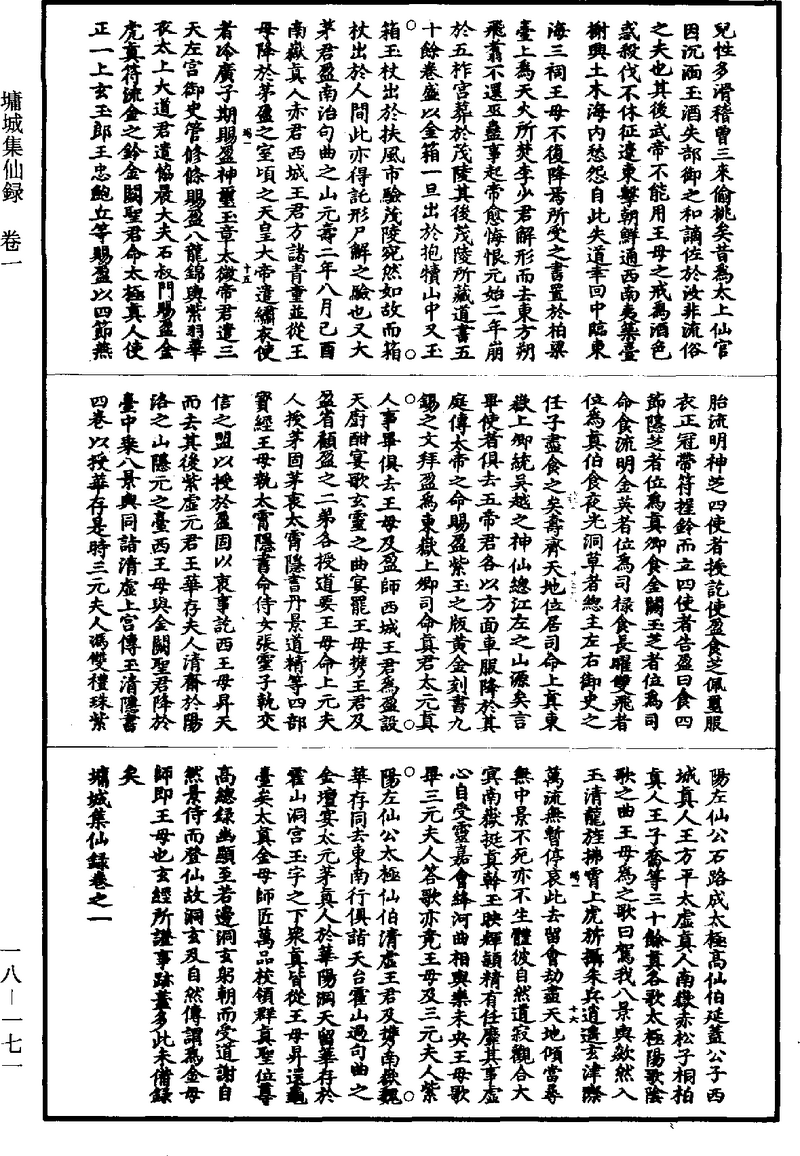 墉城集仙録　卷一
兒性多滑稽曾三來偷桃矣昔爲太上仙官
因沉湎玉酒失部御之和謫佐於汝非流俗
之夫也其後武帝不能用王母之戒爲酒色
惑殺伐不休征遼東擊朝鮮通西南夷築臺
榭興土木海内愁怨自此失道幸回中臨東
海三祠王母不復降焉所受之書置於柏梁
臺上爲天火所焚李少君解形而去東方朔
飛翥不還巫蠱事起帝愈悔恨元始二年崩
於五柞宮葬於茂陵其後茂陵所藏道書五
十餘卷盛以金箱一旦出於抱犢山中又玉
箱玉杖出於扶風市驗茂陵宛然如故而箱
杖出於人間此亦得託形尸解之驗也又大
茅君盈南治句曲之山元壽二年八月己酉
南嶽真人赤君西城王君方諸青童並從王
母降於茅盈之室頃之天皇大帝遣繡衣使
者冷廣子期賜盈神璽玉章太微帝君遣三
天左宮御史管修條賜盈八龍錦輿紫羽華
衣太上大道君遣協晨大夫石叔門賜盈金
虎真符流金之鈴金闕聖君命太極真人使
正一上玄玉郎王忠鮑丘等賜盈以四節燕
胎流明神芝四使者授訖使盈食芝佩璽服
衣正冠帶符握鈴而立四使者告盈曰食四
節隱芝者位爲真卿食金闕玉芝者位爲司
命食流明金英者位爲司禄食長曜雙飛者
位爲真伯食夜光洞草者總主左右御史之
任子盡食之矣壽齊天地位居司命上真東
嶽上卿統吳越之神仙總江左之山源矣言
畢使者俱去五帝君各以方面車服降於其
庭傳太帝之命賜盈紫玉之版黄金刻書九
錫之文拜盈爲東嶽上卿司命真君太元真
人事畢俱去王母及盈師西城王君爲盈設
天廚酣宴歌玄靈之曲宴罷王母攜王君及
盈省顧盈之二弟各授道要王母命上元夫
人授茅固茅衷太霄隱書丹景道精等四部
寶經王母執太霄隱書命侍女張靈子執交
信之盟以授於盈固以衷事訖西王母昇天
而去其後紫虛元君王華存夫人清齋於陽
洛之山隱元之臺西王母與金闕聖君降於
臺中乘八景輿同詣清虛上宮傳玉清隱書
四卷以授華存是時三元夫人馮雙禮珠紫
陽左仙公石路成太極高仙伯延蓋公子西
城真人王方平太虛真人南嶽赤松子桐柏
真人王子喬等三十餘真各歌太極陽歌陰
歌之曲王母爲之歌曰駕我八景輿欻然入
玉清龍旌拂霄上虎旂攝朱兵逍遥玄津際
萬流無暫停哀此去留會劫盡天地傾當尋
無中景不死亦不生體彼自然道寂觀合大
冥南嶽挺真幹玉映輝頴精有任靡其事虛
心自受靈嘉會絳河曲相與樂未央王母歌
畢三元夫人答歌亦竟王母及三元夫人紫
陽左仙公太極仙伯清虛王君及攜南嶽魏
華存同去東南行俱詣天台霍山過句曲之
金壇宴太元茅真人於華陽洞天留華存於
霍山洞宮玉宇之下衆真皆從王母昇還龜
臺矣太真金母師匠萬品校領群真聖位尊
高總録幽顯至若邊洞玄躬朝而受道謝自
然景侍而登仙故洞玄及自然傳謂爲金母
師即王母也玄經所證事跡蓋多此未備録
矣
墉城集仙録卷之一
一八—一七一